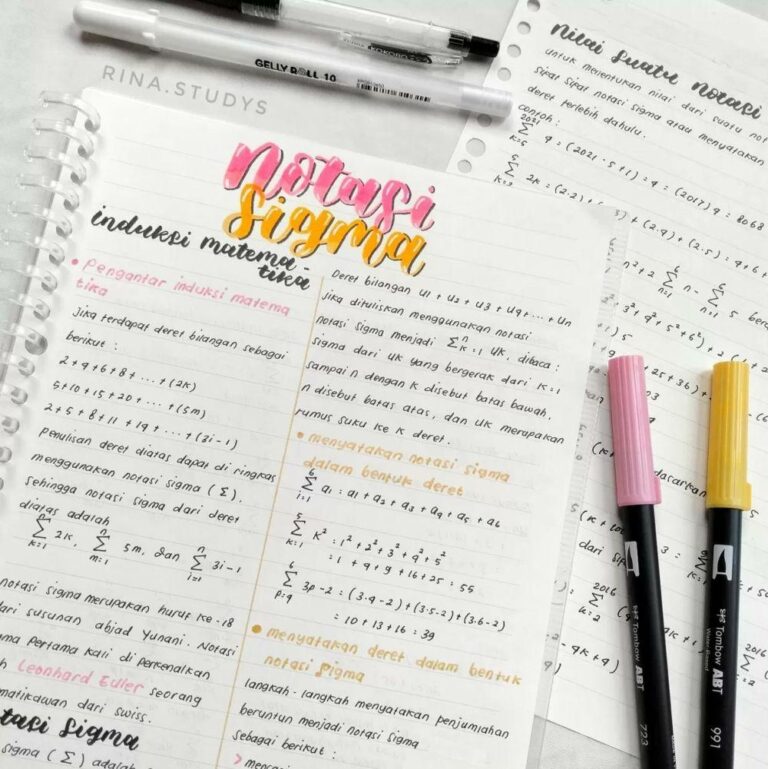 KOKORO
GELLY ROLL 10
RINA.STUDYS
notasi
sigma
induksi matema-
tika
• Pengantar induksi matema
tika
Jika terdapat deret bilangan sebagai
berikut :
2+4+6+8+ ... +(2k)
5+10+15+20+ ... +(5m)
2+5+8+11+14+ ... +(3i-1)
Penulisan deret diatas dapat di ringkas
menggunakan notasi sigma (Σ).
Sehingga notasi sigma dari deret
diatas adalah
n n n
Σ 2k, Σ 5m, dan Σ 3i-1
k=1 m=1 i=1
notasi sigma merupakan huruf ke-18
dari susunan abjad Yunani. Notasi
Pertama kali di perkenalkan
Leonhard Euler seorang
dari swiss.
sigma
sigma (Σ) adalah
Deret bilangan u1 + u2 + u3 + u4 + ... + un
Jika dituliskan menggunakan notasi
notasi sigma menjadi Σ^n k=1 uk, dibaca:
sigma dari uk yang bergerak dari k=1
sampai n dengan k disebut batas bawah,
n disebut batas atas, dan uk merupakan
rumus suku ke k deret.
• menyatakan notasi sigma
dalam bentuk deret
6
Σ a1 = a1 + a2 + a3 + a4 + a5 + a6
i=1
5
Σ k² = 1² + 2² + 3² + 4² + 5²
k=1
= 1 + 4 + 9 + 16 + 25 = 55
6
Σ 3p-2 = (3·4-2)+(3·5-2)+(3·6-2)
p=4
= 10 + 13 + 16 = 39
• menyatakan deret dalam bentuk
notasi sigma
langkah-langkah menyatakan penjumlahan
beruntun menjadi notasi sigma
sebagai berikut :
nilai suatu notasi
untuk menentukan nilai dari suatu
sifat sifat notasi sigma atau menyatakan
deret terlebih dahulu.
contoh :
2021
Σ 4 = (2021-5+1) = 4 = (2017) 4 = 8068
k=5
5
Σ 2k = (2·2) + + (2·4) + (2·5) = 4+6+
k=2
n² + 2 Σ n - Σ 5
dasarkan
dari sifat
2016
2016
Tombow ABT
723
Tombow ABT
Water-Based
991